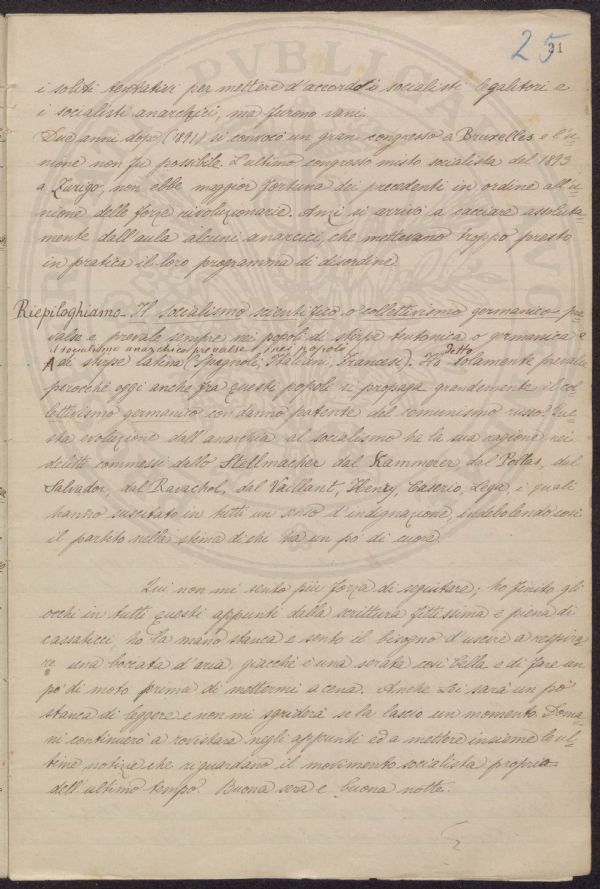 25
21
i soliti tentativi per mettere d'accordo i socialisti legalitori e
i socialisti anarchici, ma furono vani.
Due anni dopo (1891) si convocò un gran congresso a Bruxelles e l'u-
nione non fu possibile. L'ultimo congresso misto socialista del 1893
a Zurigo, non ebbe maggior fortuna dei precedenti in ordine all'u-
nione delle forze rivoluzionarie. Anzi si arrivò a cacciare assoluta-
mente dall'aula alcuni anarcici, che mettevano troppo presto
in pratica il loro programma di disordine.
Riepiloghiamo. Il socialismo scientifico o collettivismo germanico pre-
valse e prevale sempre nei popoli di stirpe teutonica o germanica e
il socialismo anarchico prevalse nei popoli
di stirpe latina (Spagnoli, Italiani, Francesi). Ho detto solamente prevalse
perocchè oggi anche fra questi popoli si propaga grandemente il col-
lettivismo germanico con danno patente del comunismo russo. Que-
sta evoluzione dall'anarchia al socialismo ha la sua ragione nei
delitti commessi dallo Stellmacher dal Kammerer, dal Pallas, dal
Salvador, dal Ravachol, dal Vaillant, Henry, Caserio, Lega, i quali
hanno suscitato in tutti un senso d'indignazione indebolendo così
il partito nella stima di chi ha un po' di cuore.
Qui non mi sento più forza di seguitare; ho finito gli
occhi in tutti questi appunti dalla scrittura fittissima e piena di
cassaticci, ho la mano stanca e sento il bisogno d'uscire a respira-
re una boccata d'aria, giacchè è una serata così bella e di fare un
po' di moto prima di mettermi a cena. Anche Lei sarà un po'
stanca di leggere e non mi sgriderà se la lascio un momento. Doma-
ni continuerò a rovistare negli appunti ed a mettere insieme le ul-
time notizie che riguardano il movimento socialista proprio
dell'ultimo tempo. Buona sera e buona notte.